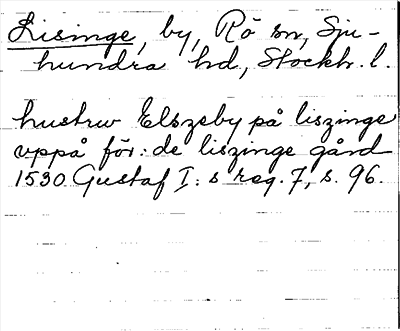 Lisinge, by, Rö sn, Sju-
hundra hd, Stockh. l.
hustrw Elszeby på liszinge
vppå för: de liszinge gård
1530 Gustaf I: s reg. 7, s. 96.